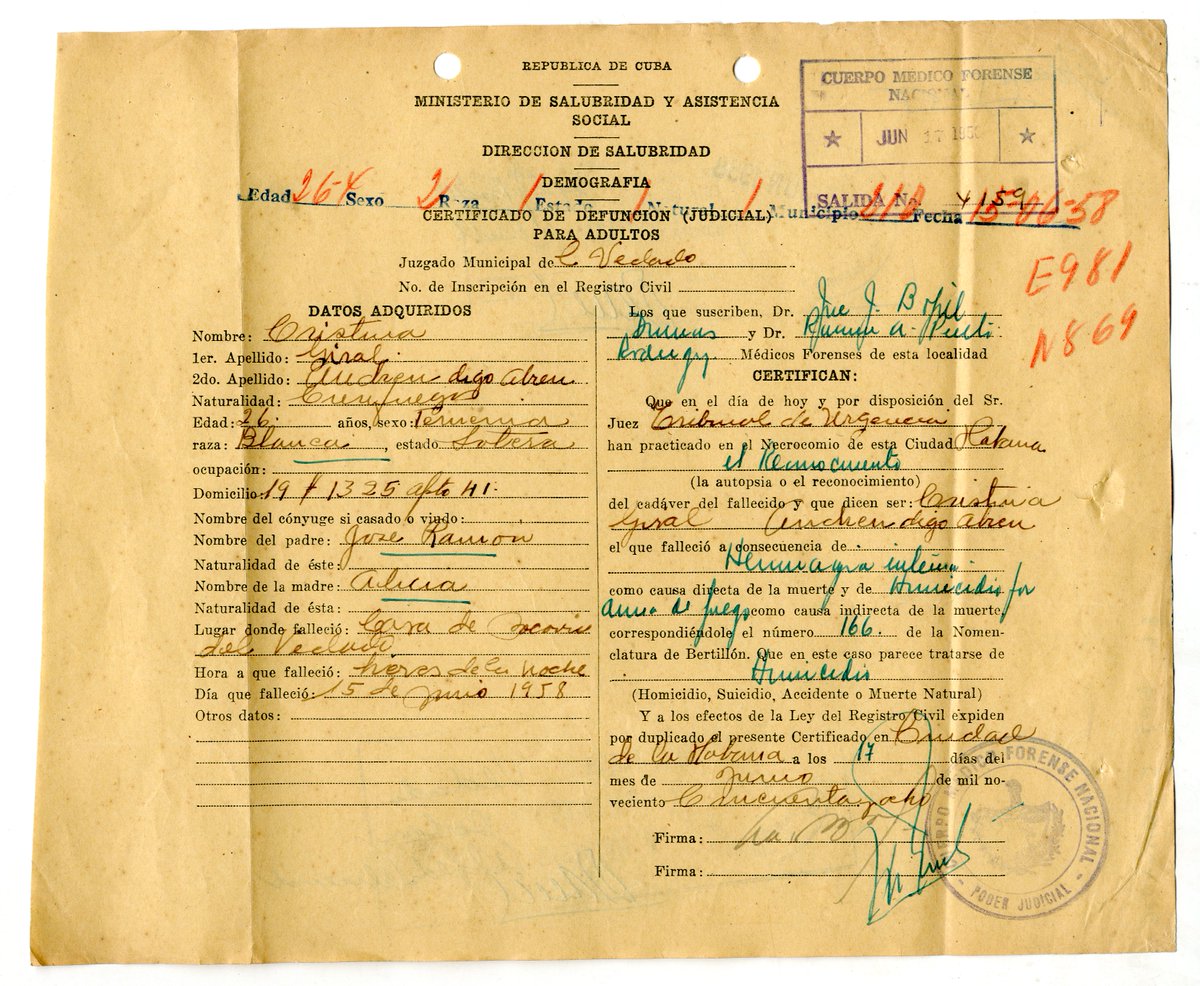 REPUBLICA DE CUBA
MINISTERIO DE SALUBRIDAD Y ASISTENCIA
SOCIAL
DIRECCION DE SALUBRIDAD
DEMOGRAFIA
CUERPO MEDICO FORENSE
NACIONAL
JUN 17 195
SALIDA No. 4159
Edad 26-4 Sexo 2 Raza 1 Estado 1 Natural 1 Municipio Fecha 15-06-58
CERTIFICADO DE DEFUNCIÓN (JUDICIAL)
PARA ADULTOS
E981
N869
Juzgado Municipal de Vedado
No. de Inscripción en el Registro Civil
DATOS ADQUIRIDOS
Nombre: Cristina
1er. Apellido: Giral
2do. Apellido: Andreu digo Abreu
Naturalidad: Cienfuegos
Edad: 26 años, sexo: Femenina
raza: Blanca, estado Soltera
ocupación:
Domicilio 19 # 1325 apto 41.
Nombre del cónyuge si casado o viudo:
Nombre del padre: José Ramón
Naturalidad de éste:
Nombre de la madre: Alicia
Naturalidad de ésta:
Lugar donde falleció: Casa de Socorro
del Vedado
Hora a que falleció: horas de la noche
Día que falleció: 15 de junio 1958
Otros datos:
Los que suscriben, Dr. José J.
y Dr. Ramon A.
Médicos Forenses de esta localidad
CERTIFICAN:
Que en el día de hoy y por disposición del Sr.
Juez Tribunal de Urgencia
han practicado en el Necrocomio de esta Ciudad Habana
el Reconocimiento
(la autopsia o el reconocimiento)
del cadáver del fallecido y que dicen ser: Cristina
Giral Andreu digo Abreu
el que falleció a consecuencia de
Hemorragia interna
como causa directa de la muerte y de Homicidio por
arma de fuego como causa indirecta de la muerte,
correspondiéndole el número 166. de la Nomen-
clatura de Bertillón. Que en este caso parece tratarse de
Homicidio
(Homicidio, Suicidio, Accidente o Muerte Natural)
Y a los efectos de la Ley del Registro Civil expiden
por duplicado el presente Certificado en Ciudad
de la Habana a los 17 días del
mes de junio de mil no-
veciento Cincuentayocho
Firma:
Firma:
CUERPO MEDICO FORENSE NACIONAL
PODER JUDICIAL